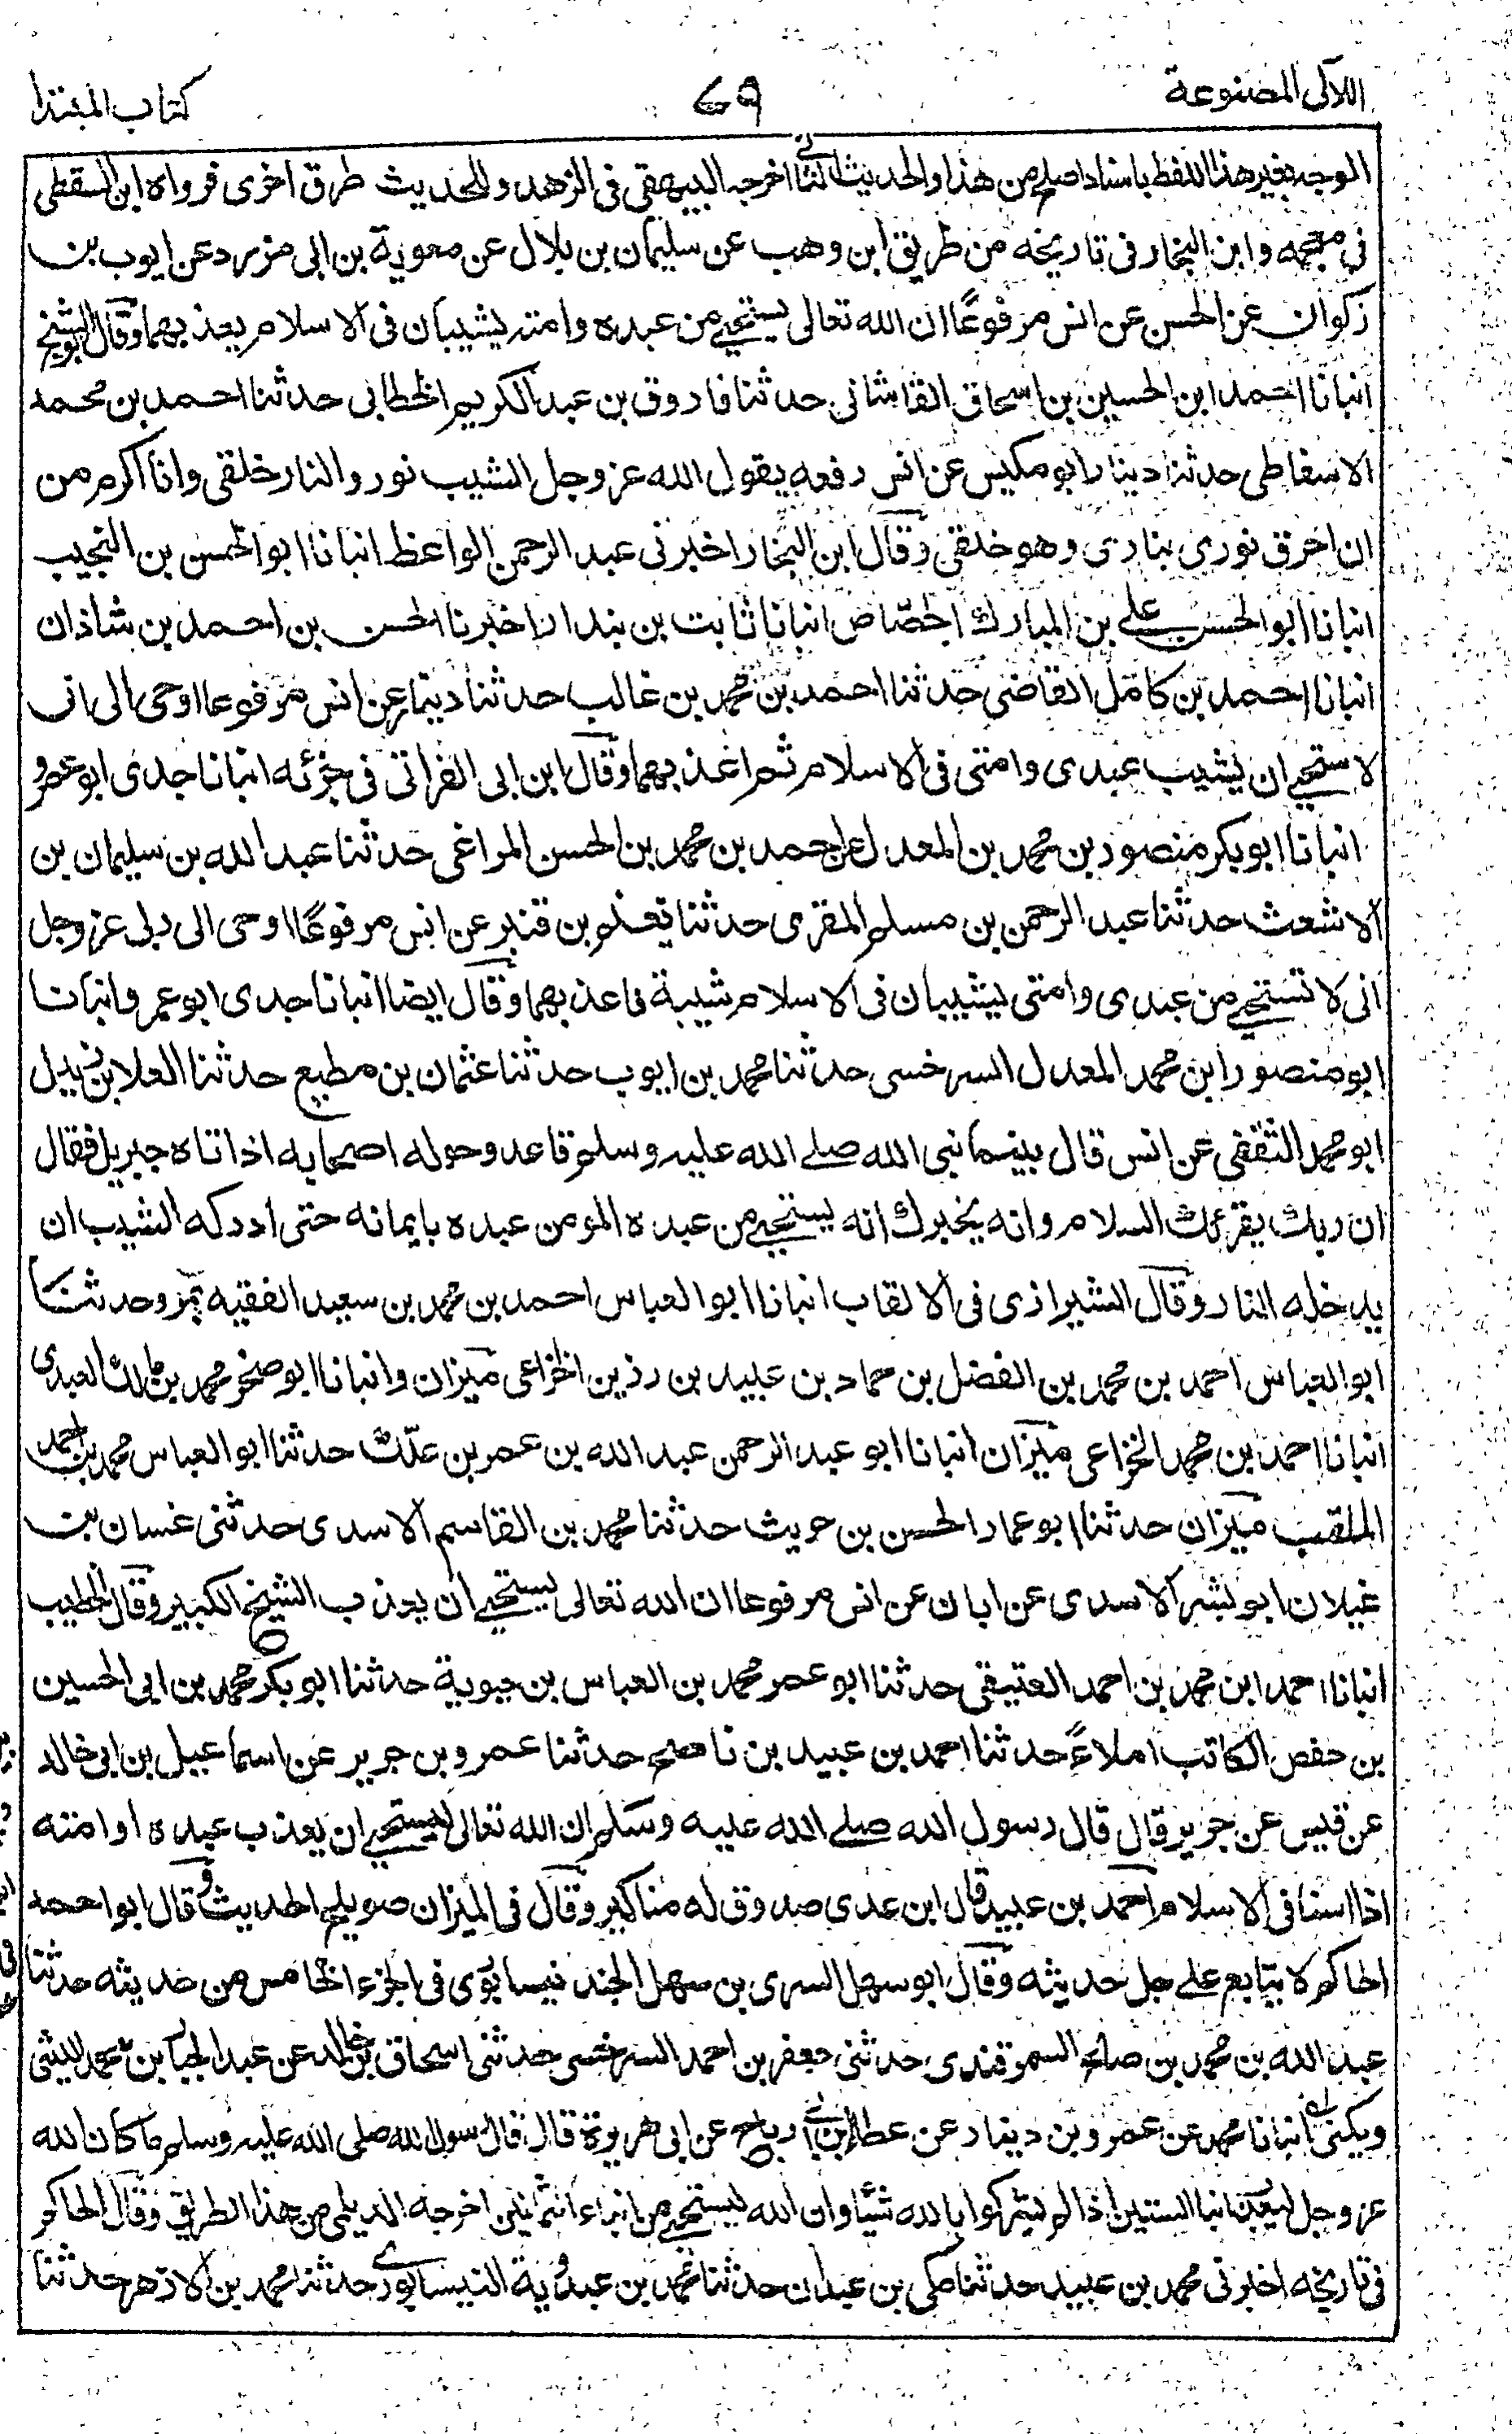 اللآلى المصنوعة
٦٩
كتاب المبتدا
الوجه بغير هذا اللفظ باسناد اصلح من هذا والحديث الثانى اخرجه البيهقى فى الزهد وللحديث طرق اخرى فرواه ابن السقطى
فى معجمه وابن النجار فى تاريخه من طريق ابن وهب عن سليمان بن بلال عن معوية بن ابى مزرد عن ايوب بن
زكوان عن الحسن عن انس مرفوعًا ان الله تعالى يستحيي من عبده وامته يشيبان فى الاسلام يعذبهما وقال ابو الشيخ
انبانا احمد ابن الحسين بن اسحاق القاشانى حدثنا فاروق بن عبد الكريم الخطابى حدثنا احمد بن محمد
الاسفاطى حدثنا دينار ابو مكيس عن انس رفعه يقول الله عز وجل الشيب نور والنار خلقى وانا اكرم من
ان احرق نورى بنارى وهو خلقى وقال ابن النجار اخبرنى عبد الرحمن الواعظ انبانا ابو الحسن بن النجيب
انبانا ابو الحسن على بن المبارك الجصاص انبانا ثابت بن بندار اخبرنا الحسن بن احمد بن شاذان
انبانا احمد بن كامل القاضى حدثنا احمد بن محمد بن غالب حدثنا دينار عن انس مرفوعا اوحى الى انى
لاستحيي ان يشيب عبدى وامتى فى الاسلام ثم اعذبهما وقال ابن ابى الفراتى فى جزئه انبانا جدى ابو عمرو
انبانا ابو بكر منصور بن محمد بن المعدل احمد بن محمد بن الحسن المراغى حدثنا عبد الله بن سليمان بن
الاشعث حدثنا عبد الرحمن بن مسلم المقرى حدثنا يغنم بن قنبر عن انس مرفوعًا اوحى الى ربى عز وجل
انى لاستحيي من عبدى وامتى يشيبان فى الاسلام شيبة فاعذبهما وقال ايضا انبانا جدى ابو عمرو انبانا
ابو منصور ابن محمد المعدل السرخسى حدثنا محمد بن ايوب حدثنا عثمان بن مطيع حدثنا العلا بن زيدل
ابو محمد الثقفى عن انس قال بينما نبى الله صلى الله عليه وسلم قاعد وحوله اصحابه اذ اتاه جبريل فقال
ان ربك يقرئك السلام وانه يخبرك انه يستحيي من عبده المومن عبده بايمانه حتى ادركه الشيب ان
يدخله النار وقال الشيرازى فى الالقاب انبانا ابو العباس احمد بن محمد بن سعيد الفقيه بمرو حدثنا
ابو العباس احمد بن محمد بن الفضل بن حماد بن عبيد بن رذين الخزاعى ميزان وانبانا ابو صخر محمد بن مالك العبدى
انبانا احمد بن محمد الخزاعى ميزان انبانا ابو عبد الرحمن عبد الله بن عمر بن علك حدثنا ابو العباس محمد بن احمد
الملقب ميزان حدثنا ابو عمار الحسن بن حريث حدثنا محمد بن القاسم الاسدى حدثنى غسان بن
غيلان ابو بشر الاسدى عن ابان عن انس مرفوعا ان الله تعالى ليستحيي ان يعذب الشيخ الكبير وقال الخطيب
انبانا احمد ابن محمد بن احمد العتيقى حدثنا ابو عمر محمد بن العباس بن حيوية حدثنا ابو بكر محمد بن ابى الحسين
بن حفص الكاتب املاءً حدثنا احمد بن عبيد بن ناصح حدثنا عمرو بن جرير عن اسماعيل بن ابى خالد
عن قيس عن جرير قال قال رسول الله صلى الله عليه وسلم ان الله تعالى ليستحيي ان يعذب عبده او امته
اذا اسنا فى الاسلام احمد بن عبيد قال ابن عدى صدوق له مناكير وقال فى الميزان صويلح الحديث وقال ابو احمد
الحاكم لا يتابع على جل حديثه وقال ابو سهل السرى بن سهل الجند نيسابوى فى الجزء الخامس من حديثه حدثنا
عبد الله بن محمد بن صالح السمرقندى حدثنى جعفر بن احمد السرخسى حدثنى اسحاق بن خالد عن عبد الجبا بن محمد الليثى
ويكنى انبانا محمد عن عمرو بن دينار عن عطا ابن ابى رباح عن ابى هريرة قال قال رسول الله صلى الله عليه وسلم ما كان الله
عز وجل ليعذب ابنا الستين اذا لم يشركوا بالله شيئا وان الله ليستحيي من ابناء الثمانين اخرجه الديلمى من هذا الطريق وقال الحاكم
فى تاريخه اخبرنى محمد بن عبيد حدثنا مكى بن عبدان حدثنا محمد بن عبدوية النيسابورى حدثنا محمد بن الازهر حدثنا